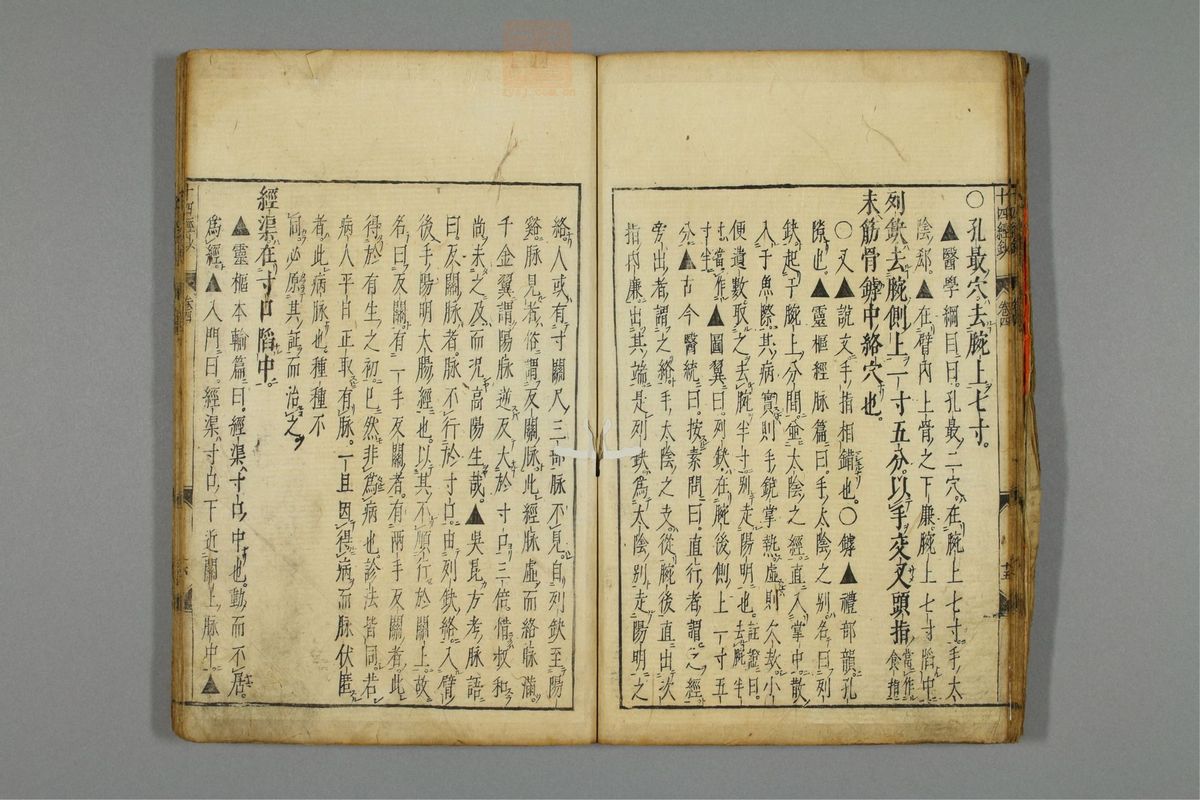 ○孔最穴。去腕上七寸。
▲醫學綱目曰。孔最二穴。在腕上七寸。手太
陰郄。▲在臂內上骨之下廉。腕上七寸陷中。
列缺去腕側上一寸五分。以手交叉頭指當作食指
末筋骨罅中絡穴也。
○叉▲說文手指相錯也。○罅▲禮部韻孔
隙也▲靈樞經脉篇曰。手太陰之別。名曰列
缺。起于腕上分間。並太陰之經。直入掌中。散
入于魚際。其病實則手銳掌熱。虛則欠㰦。小
便遺數。取之。去腕半寸。別走陽明也。註證曰。去腕半
寸當作▲圖翼曰。列缺。在腕後側上一寸五
分。▲古今醫統曰。按素問曰。直行者謂之經。
旁出者謂之絡。手太陰之支。從腕後直出次
指內廉。出其端。是列缺。為太陰別走陽明之
絡。人或有寸關尺三部脉不見。自列缺至陽
谿。脉見者。俗謂反關脉。此經脉虛而絡脉滿。
千金翼謂陽脉逆反大於寸口三倍。惜叔和
尚未之及。而況高陽生哉。▲吳昆方考脉語
曰。反關脉者。脉不行於寸口。由列缺絡。入臂
後手陽明大腸經也。以其不順行於關上。故
名曰反關。有一手反關者。有兩手反關者。此
得於有生之初。已然非為病也。診法皆同。若
病人平日正取有脉。一旦因得病而脉伏匿
者。此病脉也。種種不
同。必原其証而治之。
經渠在寸口陷中。
▲靈樞本輸篇曰。經渠。寸口中也。動而不居。
為經。▲入門曰。經渠。寸口下近關上脉中。▲